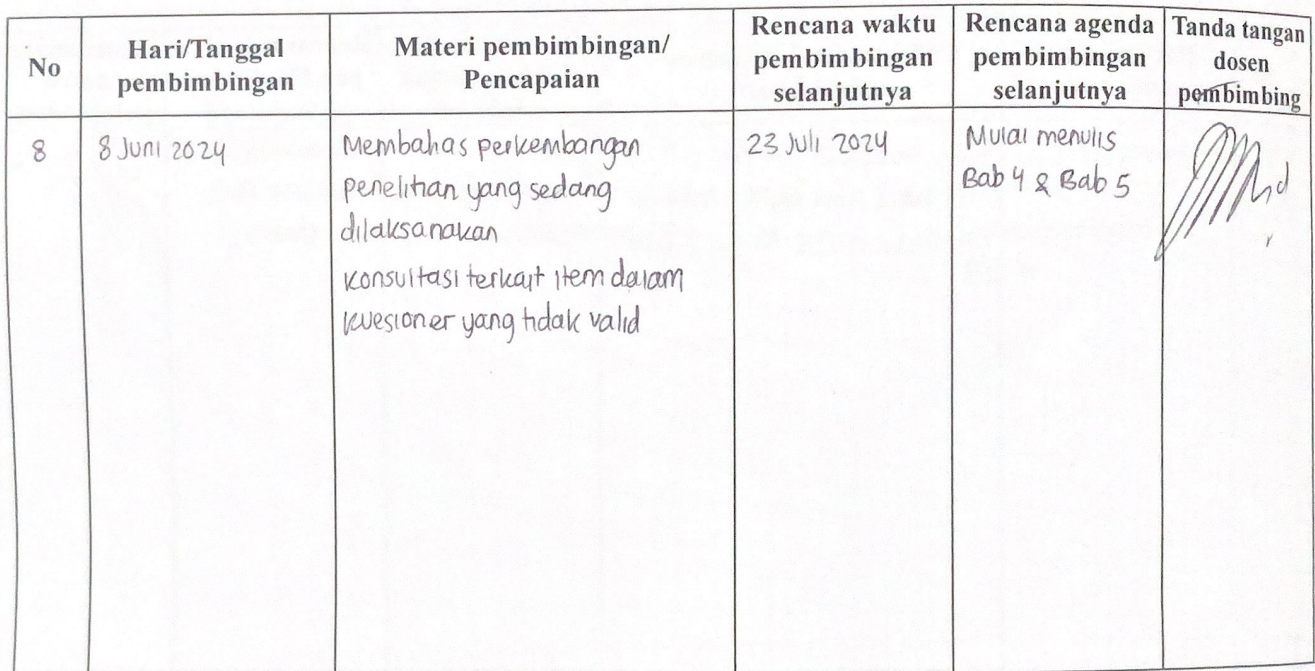 No
Hari/Tanggal
pembimbingan
Materi pembimbingan/
Pencapaian
Rencana waktu
pembimbingan
selanjutnya
Rencana agenda
pembimbingan
selanjutnya
Tanda tangan
dosen
pembimbing
8
8 Juni 2024
Membahas perkembangan
penelitian yang sedang
dilaksanakan
Konsultasi terkait item dalam
kuesioner yang tidak valid
23 Juli 2024
Mulai menulis
Bab 4 & Bab 5